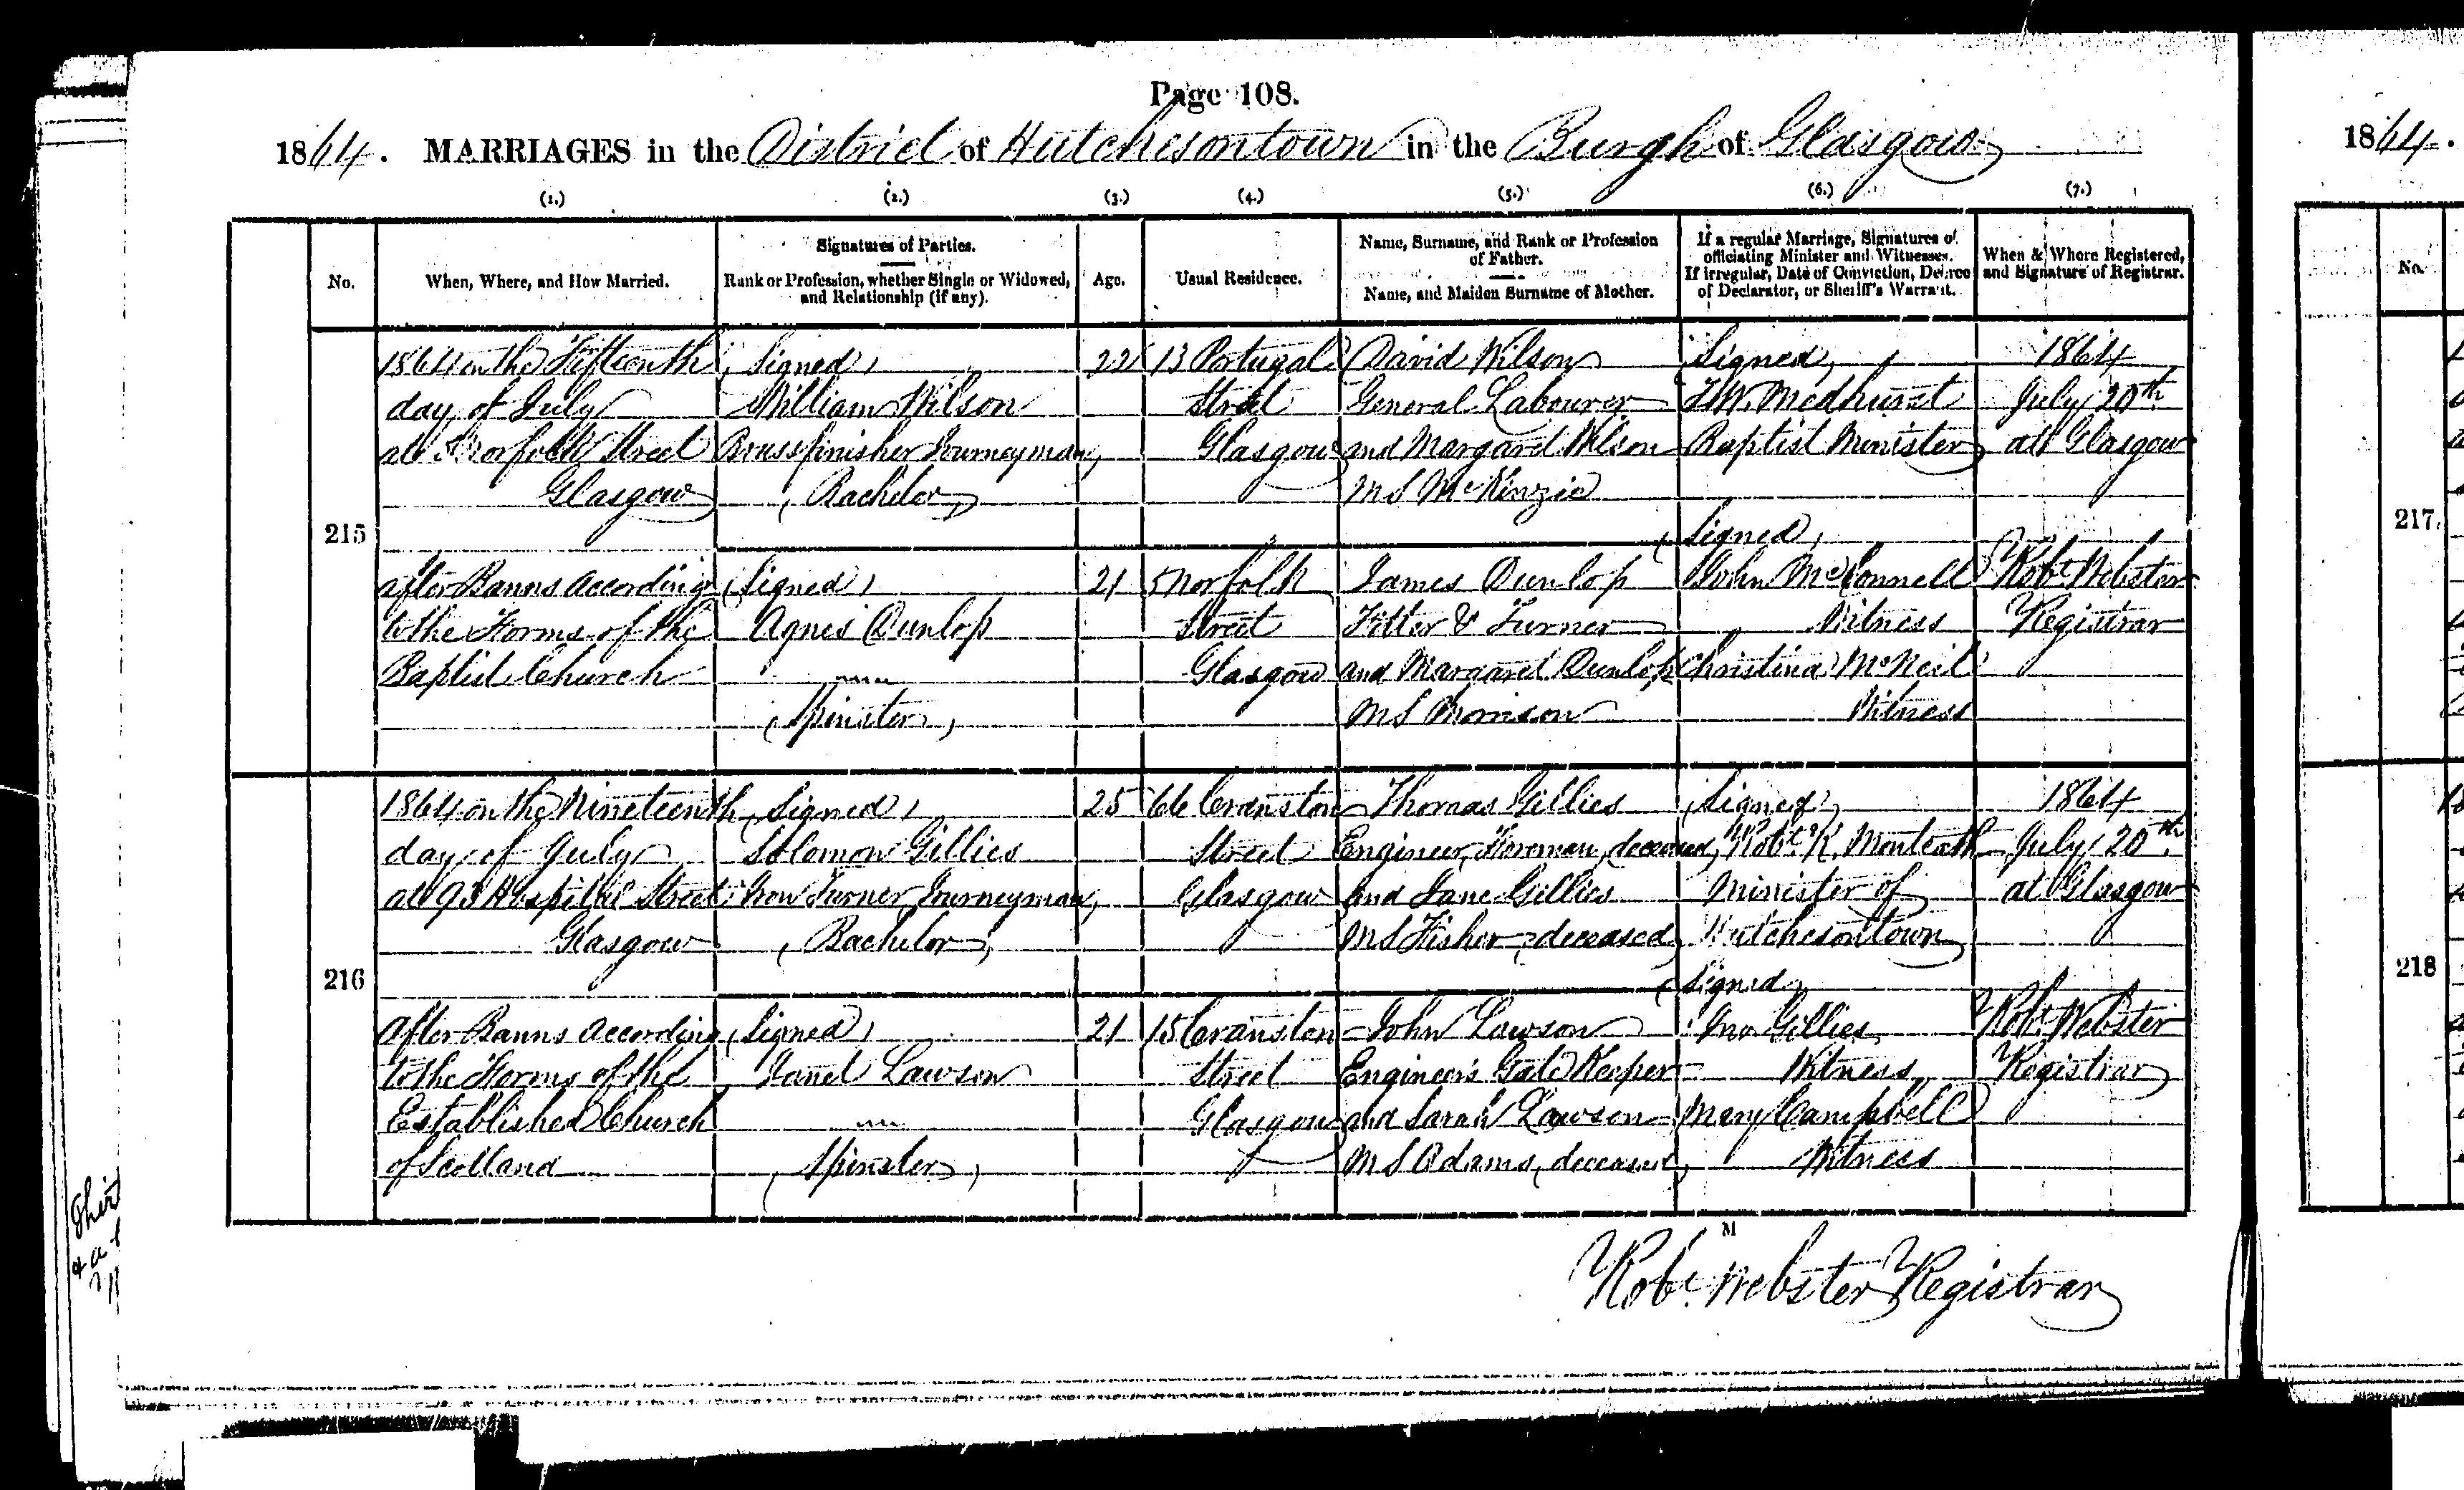 Page 108.
1864. MARRIAGES in the District of Hutchesontown in the Burgh of Glasgow
(1.) (2.) (3.) (4.) (5.) (6.) (7.)
No.
When, Where, and How Married.
Signatures of Parties.
Rank or Profession, whether Single or Widowed,
and Relationship (if any).
Age.
Usual Residence.
Name, Surname, and Rank or Profession
of Father.
Name, and Maiden Surname of Mother.
If a regular Marriage, Signatures of
officiating Minister and Witnesses.
If irregular, Date of Conviction, Decree
of Declarator, or Sheriff's Warrant.
When & Where Registered,
and Signature of Registrar.
215
1864 on the Fifteenth
day of July
at 5 Norfolk Street
Glasgow
after Banns according
to the Forms of the
Baptist Church
(Signed)
William Wilson
Brassfinisher Journeyman,
(Bachelor)
(Signed)
Agnes Dunlop
(Spinster)
22
21
13 Portugal
Street
Glasgow
5 Norfolk
Street
Glasgow
David Wilson
General Labourer
and Margaret Wilson
M S McKinzie
James Dunlop
Fitter & Turner
and Margaret Dunlop
M S Morrison
(Signed)
T. W. Medhurst
Baptist Minister
(Signed)
John McConnell
Witness
Christina McNeil
Witness
1864
July 20th
at Glasgow
Robt Webster
Registrar
216
1864 on the Nineteenth
day of July
at 93 Hospital Street
Glasgow
After Banns according
to the Forms of the
Established Church
of Scotland
(Signed)
Solomon Gillies
Iron Turner, Journeyman,
(Bachelor)
(Signed)
Janet Lawson
(Spinster)
25
21
66 Cranston
Street
Glasgow
15 Cranston
Street
Glasgow
Thomas Gillies
Engineer, Foreman, deceased,
and Jane Gillies
M S Fisher, deceased
John Lawson
Engineer's Gate Keeper
and Sarah Lawson
M S Adams, deceased,
(Signed)
Robt. K. Monteath
Minister of
Hutchesontown
(Signed)
Jno Gillies
Witness
Mary Campbell
Witness
1864
July 20th.
at Glasgow
Robt Webster
Registrar
M
Robt. Webster Registrar
1864.
No.
217.
218